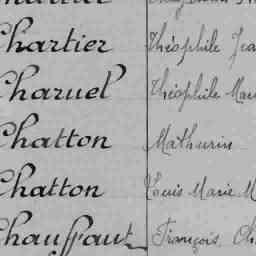 Chartier Théophile Jea
Charuel Théophile Mari
Chatton Mathurin
Chatton Louis Marie M
Chauffaut François, Ch